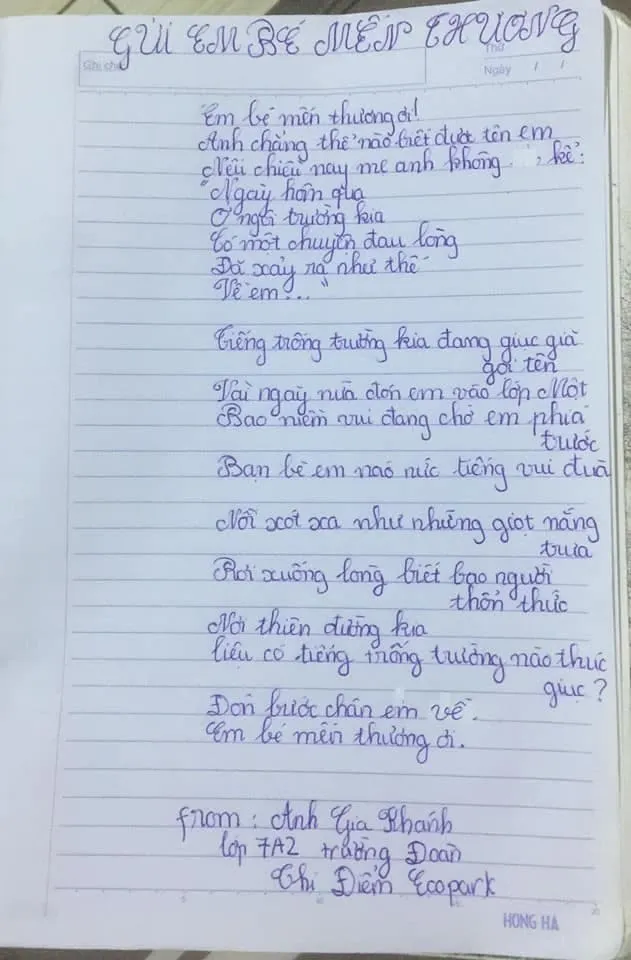 GỬI EM BÉ MẾN THƯƠNG
Ghi chú
Thứ
Ngày / /
Em bé mến thương ơi!
Anh chẳng thể nào biết được tên em
Nếu chiều nay mẹ anh không kể:
"Ngày hôm qua
Ở ngôi trường kia
Có một chuyện đau lòng
Đã xảy ra như thế
Về em..."
Tiếng trống trường kia đang giục giã
gọi tên
Vài ngày nữa đón em vào lớp Một
Bao niềm vui đang chờ em phía
trước
Bạn bè em náo nức tiếng vui đùa
Nỗi xót xa như những giọt nắng
trưa
Rơi xuống lòng biết bao người
thổn thức
Nơi thiên đường kia
liệu có tiếng trống trường nào thúc
giục?
Đón bước chân em về.
Em bé mến thương ơi.
from: Anh Gia Khánh
lớp 7A2 trường Đoàn
Thị Điểm Ecopark
HONG HA